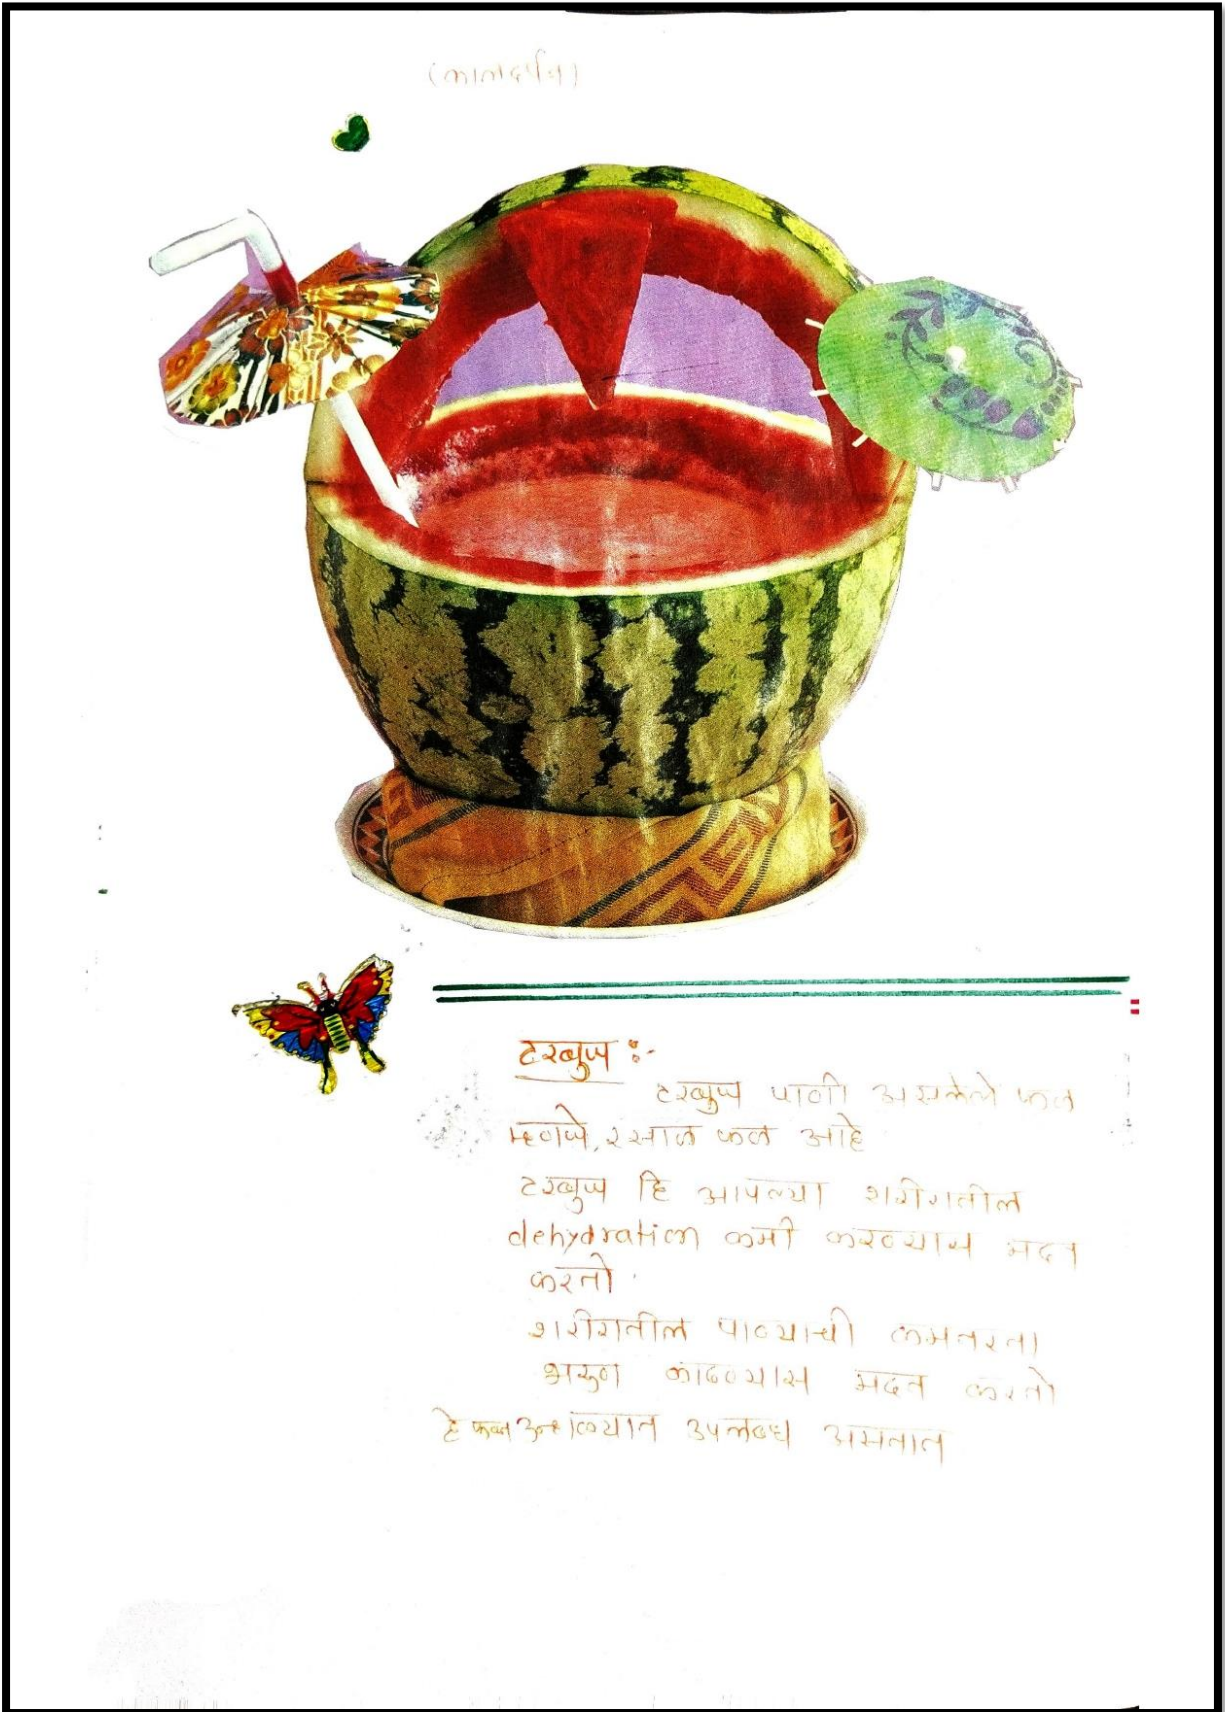 टरबुज :-
टरबुज पाणी असलेले फल
म्हणजे, रसाल फल आहे
टरबुज हि आपल्या शरीरातील
dehydration कमी करण्यास मदत
करतो.
शरीरातील पाण्याची कमतरता
भरुण काढण्यास मदत करतो
हे फल उन्हाळ्यात उपलब्ध असतात